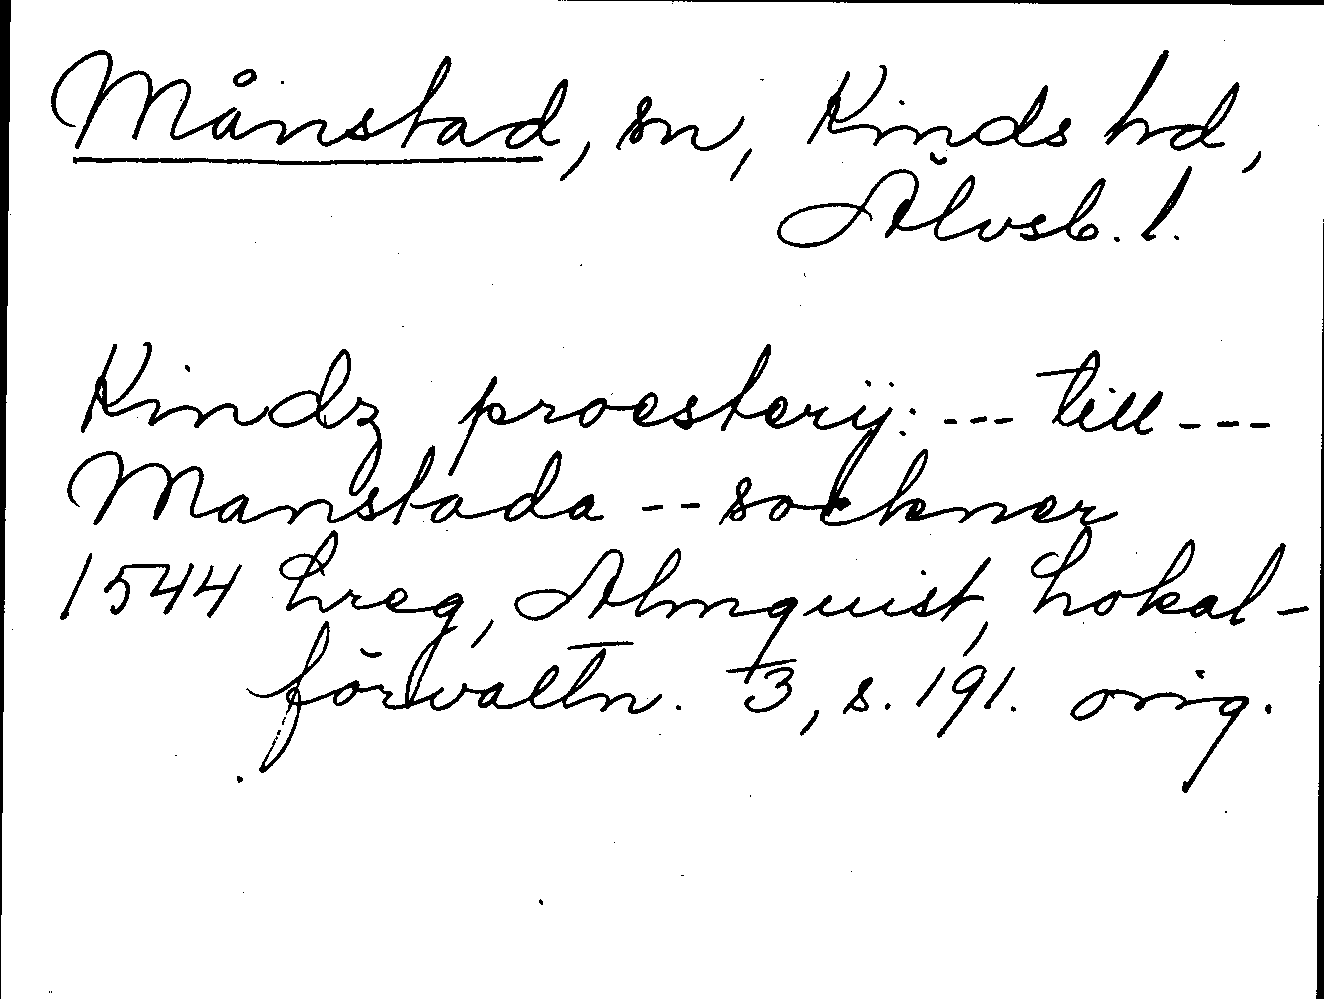 Månstad, sn, Kinds hd,
Älvsb. l.
Kindz proesterij: --- till ---
Manstada -- sockner
1544 Lreg, Almquist, Lokal-
förvaltn. 3, s. 191. orig.